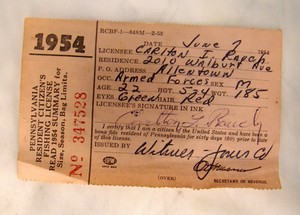 1954
PENNSYLVANIA
RESIDENT CITIZEN'S
FISHING LICENSE
READ 1954 SUMMARY for
Size, Season, Bag Limits.
No 347528
RCBF-1—848M—2-53
June 2 1954
LICENSEE Carlton
RESIDENCE 2010 Walbert Ave
P. O. ADDRESS Allentown
OCC. Armed Forces SEX M
AGE 22 HGT WGT 185
EYES Green HAIR Red
LICENSEE'S SIGNATURE IN INK
I certify that I am a citizen of the United States and have been a
bona fide resident of Pennsylvania for sixty days prior to this date
ISSUED BY
(OVER)
SECRETARY OF REVENUE.